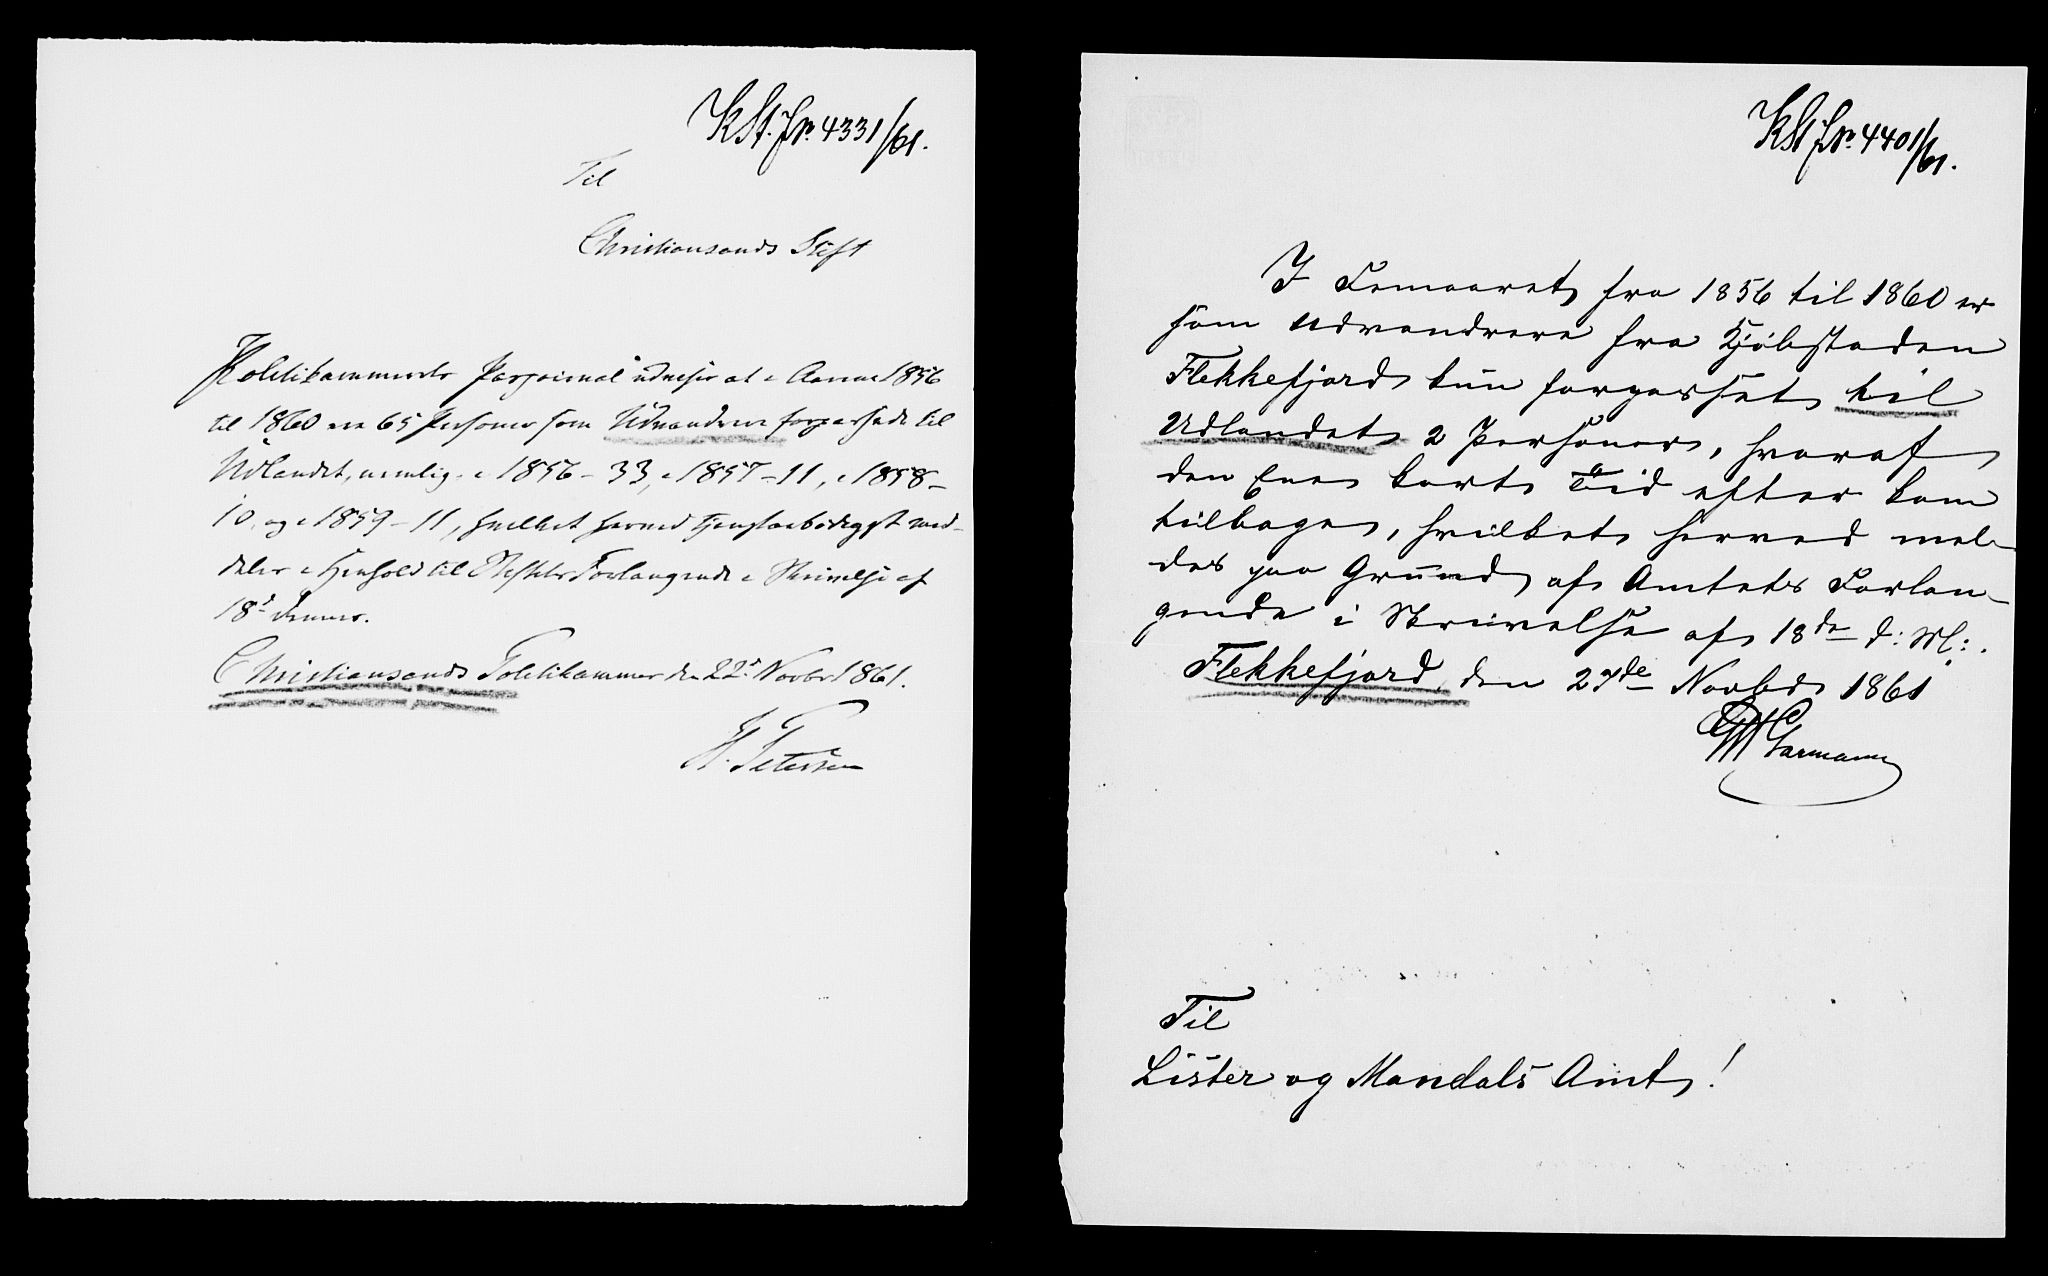 KSt. Jr. 4331/61.
Til
Christiansands Stift
Politikammerets Pasjournal udviser at i Aarene 1856
til 1860 ere 65 Personer som Udvandrere forpassede til
Udlandet, nemlig i 1856 – 33, i 1857 – 11, i 1858 –
10, og i 1859 – 11, hvilket herved tjenstærbødigst med-
deles i Henhold til Stiftets Forlangende i Skrivelse af
18d dennes.
Christiansands Politikammer den 22d Novbr 1861.
H. Petersen
KSt Jr. 4401/61.
I Femaaret fra 1856 til 1860 er
som Udvandrere fra Kjøbstaden
Flekkefjord kun forpasset til
Udlandet 2 Personer, hvoraf
den Ene kort Tid efter kom
tilbage, hvilket herved mel-
des paa Grund af Amtets Forlan-
gende i Skrivelse af 18de d: M:.
Flekkefjord, den 27de Novbr 1861
Garmann
Til
Lister og Mandals Amt!